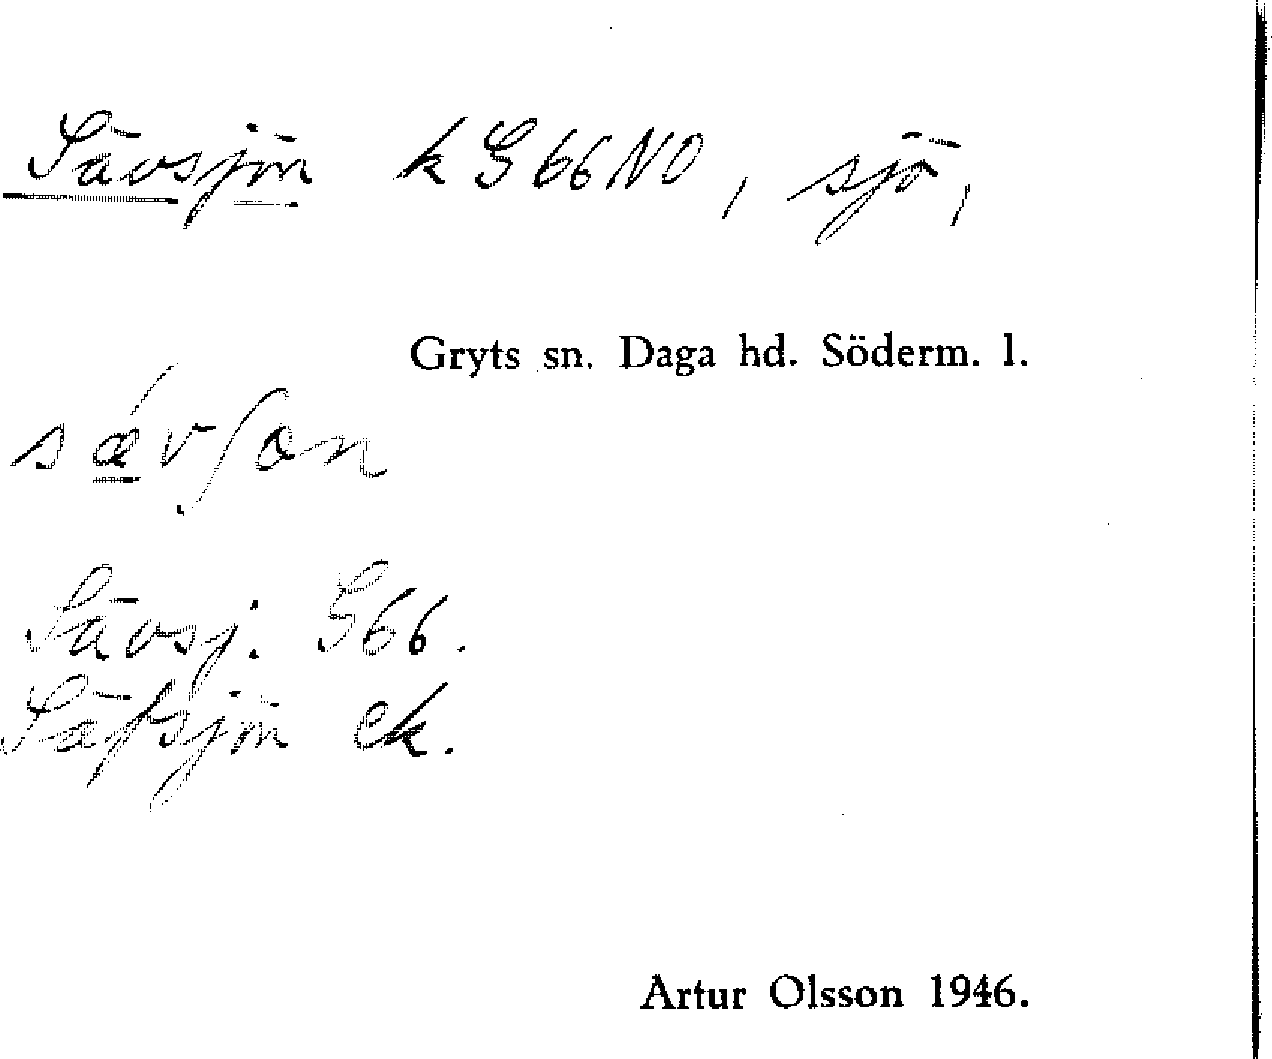 Sävsjön k G66NO, sjö,
Gryts sn. Daga hd. Söderm. l.
sǽvʃon
Sävsj. G66.
Säfsjön ek.
Artur Olsson 1946.